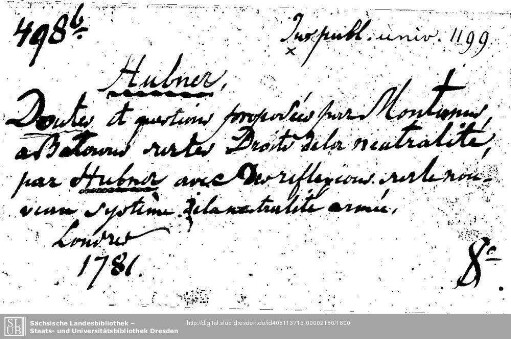 498 b. Jus publ. univ. 1199
Hubner,
Doutes et questions proposées par Montanus
a Batavus sur les Droits de la neutralité,
par Hubner avec Des reflexions sur le nou-
veau système de la neutralité armée.
Londres
1781. 8º.
SLUB
Sächsische Landesbibliothek –
Staats- und Universitätsbibliothek Dresden